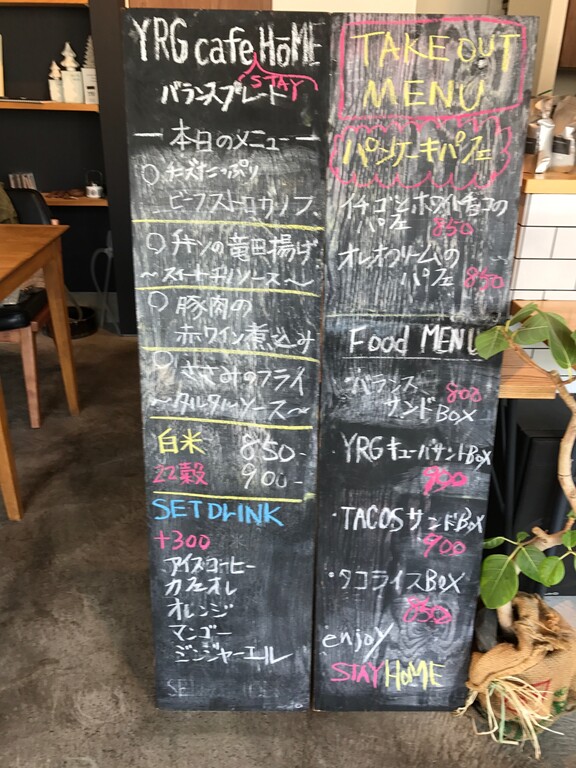 YRG cafe HōME
STAY
バランスプレート
ー本日のメニューー
○チーズたっぷり
ビーフストロガノフ
○チキンの竜田揚げ
〜スイートチリソース〜
○豚肉の
赤ワイン煮込み
○ささみのフライ
〜タルタルソース〜
白米 850-
22穀 900-
SET DRINK
+300
アイスコーヒー
カフェオレ
オレンジ
マンゴー
ジンジャーエール
TAKE OUT
MENU
パンケーキパフェ
イチゴとホワイトチョコの
パフェ 850
オレオクリームの
パフェ 850
Food MENU
・バランス 800
サンドBOX
・YRGキューバサンドBOX
900
・TACOSサンドBOX
900
・タコライスBOX
850
enjoy
STAY HOME